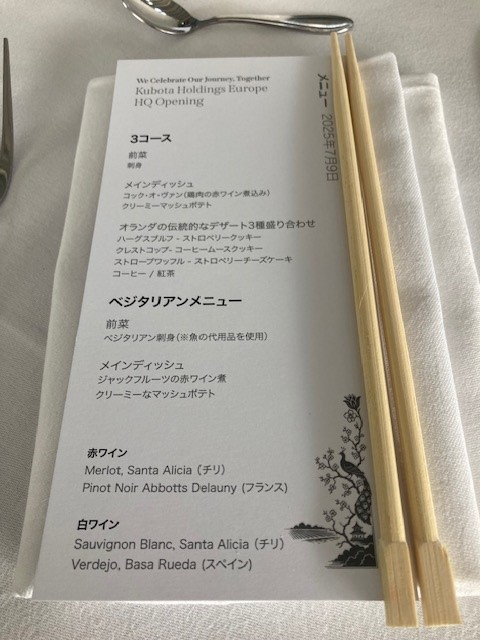 We Celebrate Our Journey, Together
Kubota Holdings Europe
HQ Opening
メニュー 2025年7月9日
3コース
前菜
刺身
メインディッシュ
コック・オ・ヴァン（鶏肉の赤ワイン煮込み）
クリーミーマッシュポテト
オランダの伝統的なデザート3種盛り合わせ
ハーグスブルフ - ストロベリークッキー
クレストコップ- コーヒームースクッキー
ストロープワッフル - ストロベリーチーズケーキ
コーヒー / 紅茶
ベジタリアンメニュー
前菜
ベジタリアン刺身（※魚の代用品を使用）
メインディッシュ
ジャックフルーツの赤ワイン煮
クリーミーなマッシュポテト
赤ワイン
Merlot, Santa Alicia（チリ）
Pinot Noir Abbotts Delauny (フランス）
白ワイン
Sauvignon Blanc, Santa Alicia（チリ）
Verdejo, Basa Rueda (スペイン）